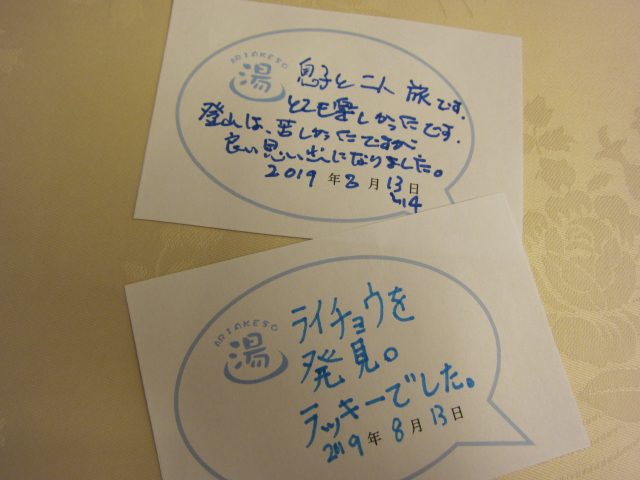 ARIAKESO
湯
息子と二人旅です.
とても楽しかったです.
登山は、苦しかったですが
良い思い出になりました。
2019年8月13日
〜14
ARIAKESO
湯
ライチョウを
発見。
ラッキーでした。
2019年8月13日